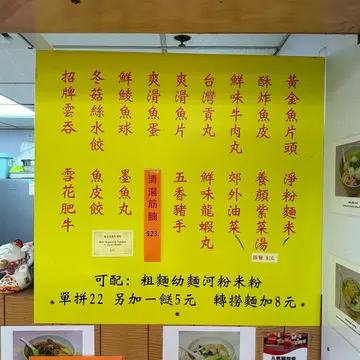 黃金魚片頭
酥炸魚皮
鮮味牛肉丸
台灣貢丸
爽滑魚片
爽滑魚蛋
鮮鯪魚球
冬菇絲水餃
招牌雲吞
淨粉麵米
養顏紫菜湯
郊外油菜
鮮味龍蝦丸
五香豬手
清湯筋腩
$23.
墨魚丸
魚皮餃
雪花肥牛
可配：粗麵幼麵河粉米粉
單拼22 另加一餸5元 轉撈麵加8元